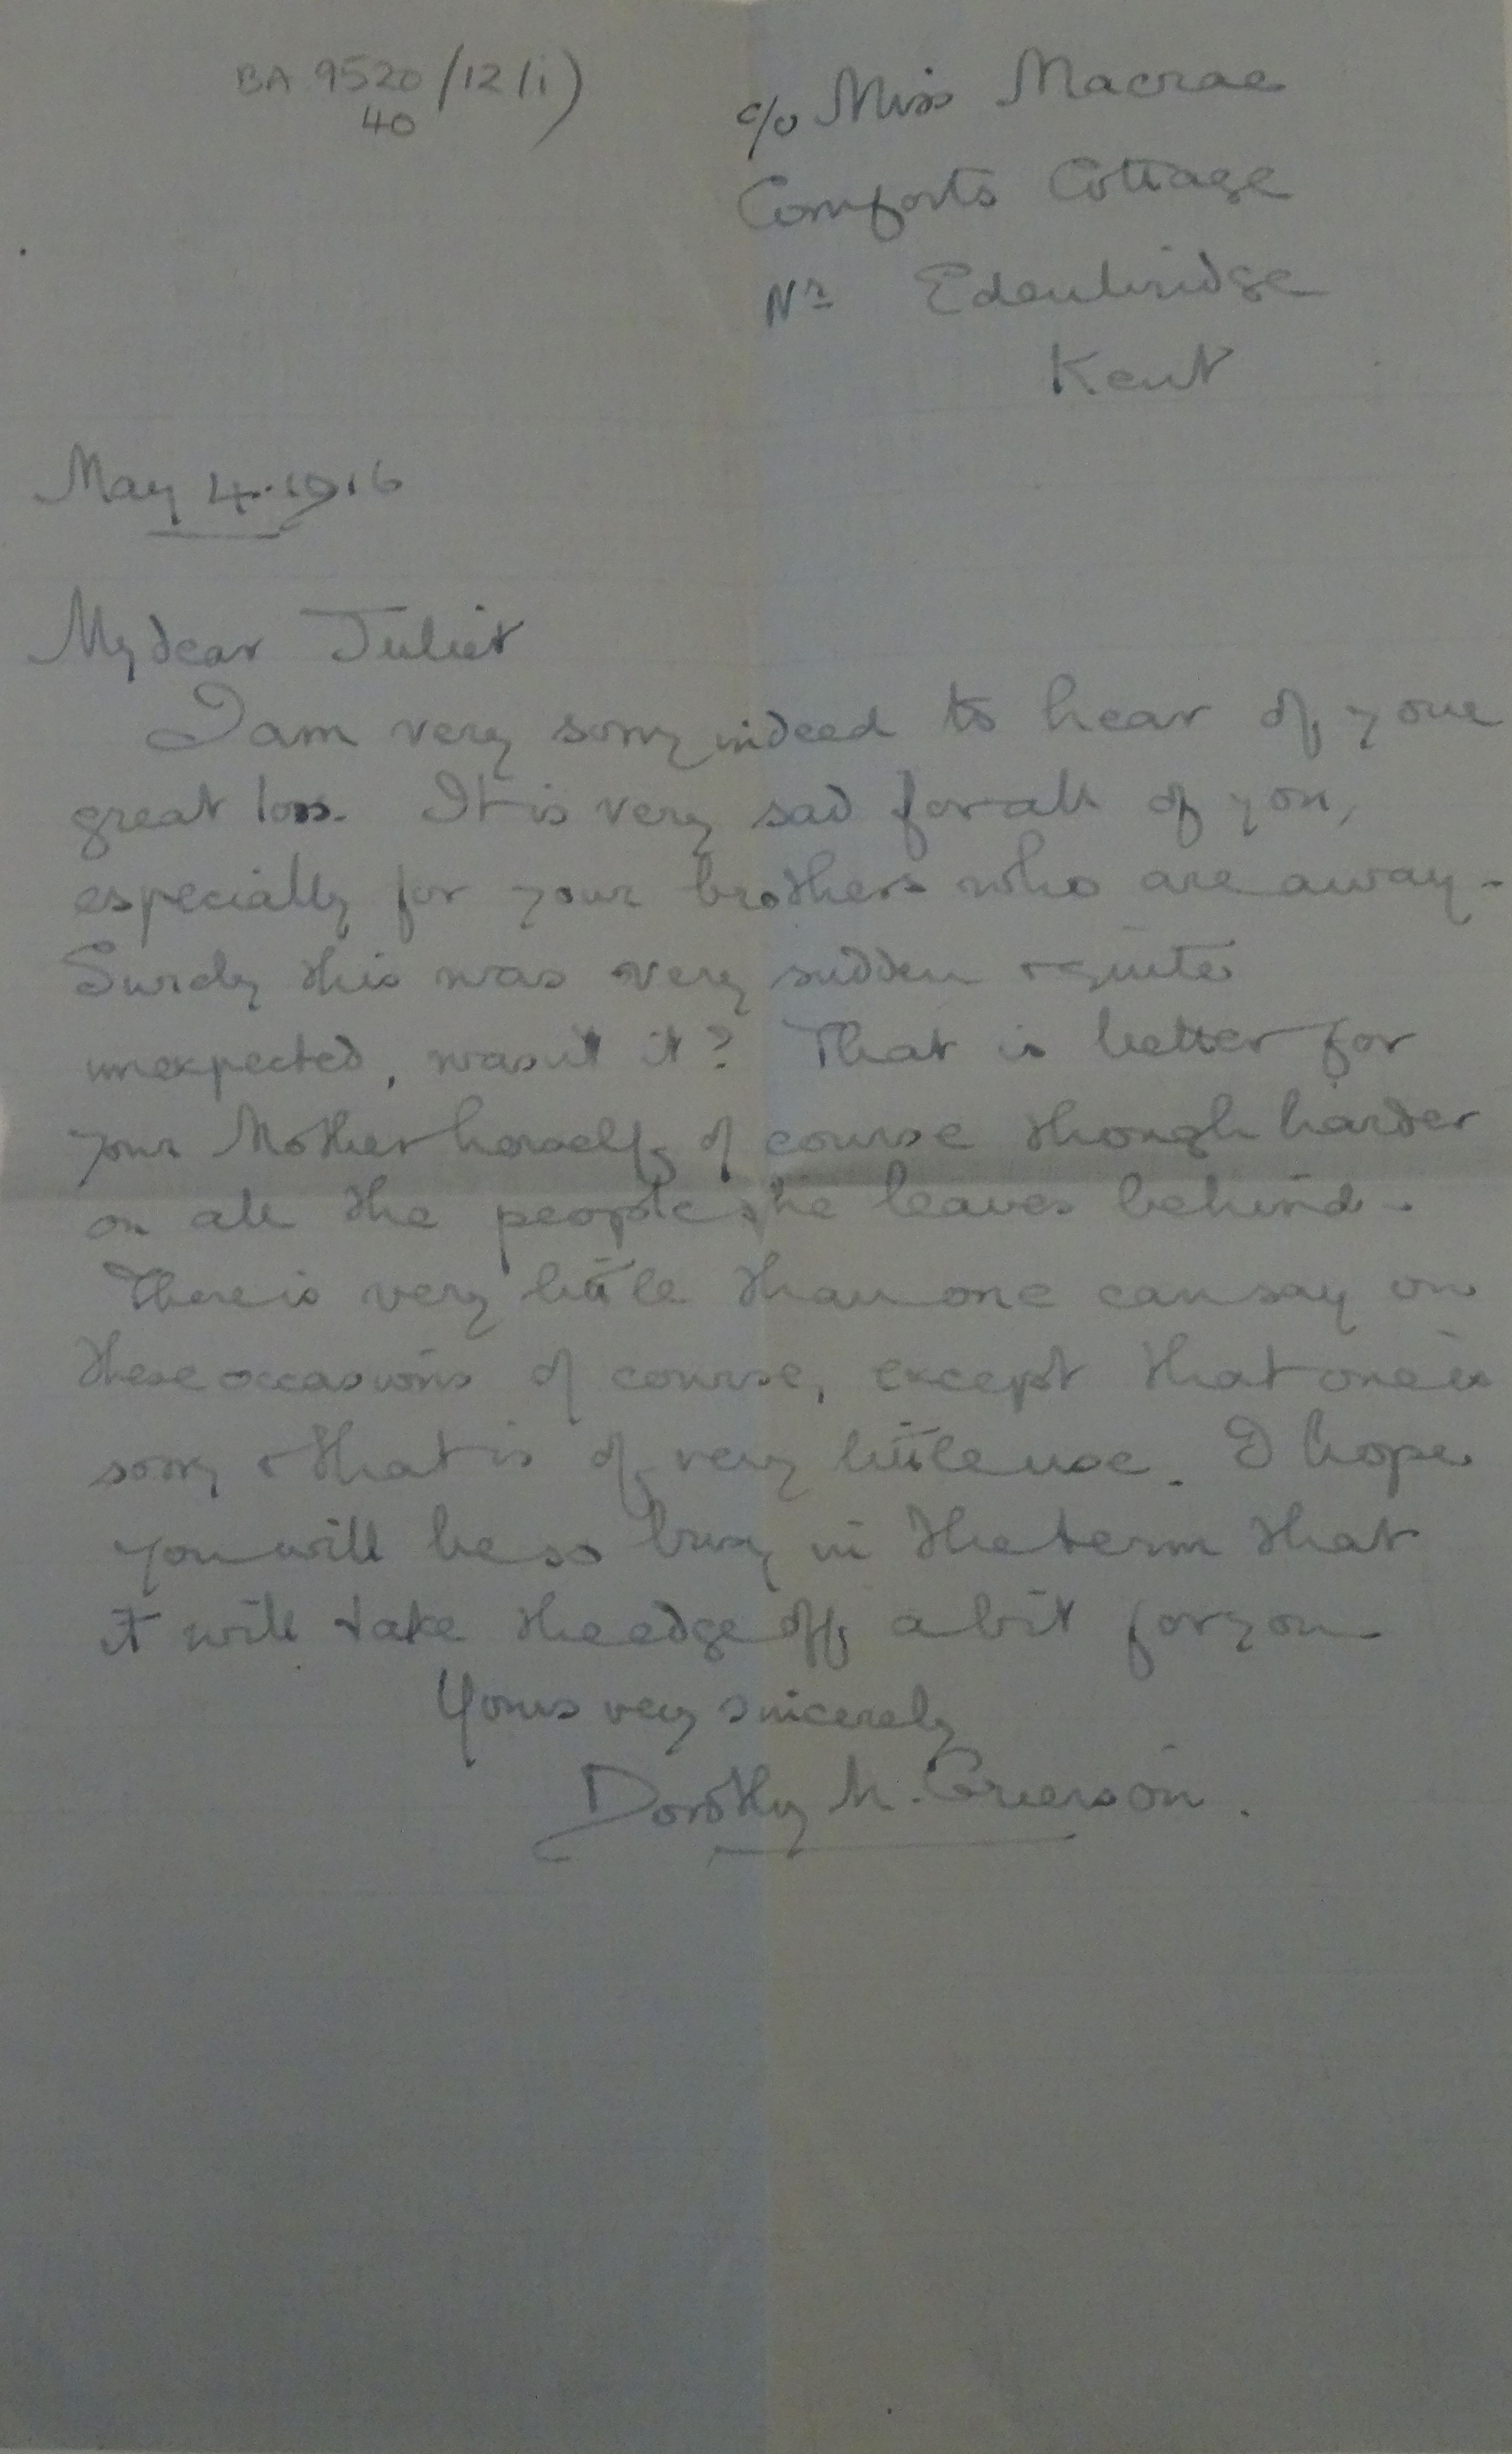 BA 9520/12(i)
40
c/o Miss Macrae
Comforts Cottage
Nr Edenbridge
Kent
May 4. 1916
My dear Juliet
I am very sorry indeed to hear of your
great loss. It is very sad for all of you,
especially for your brothers who are away.
Surely this was very sudden & quite
unexpected, wasn't it? That is better for
your Mother herself, of course though harder
on all the people she leaves behind.
There is very little than one can say on
these occasions of course, except that one is
sorry & that is of very little use. I hope
you will be so busy in the term that
it will take the edge off a bit for you.
Yours very sincerely
Dorothy M. Grierson.